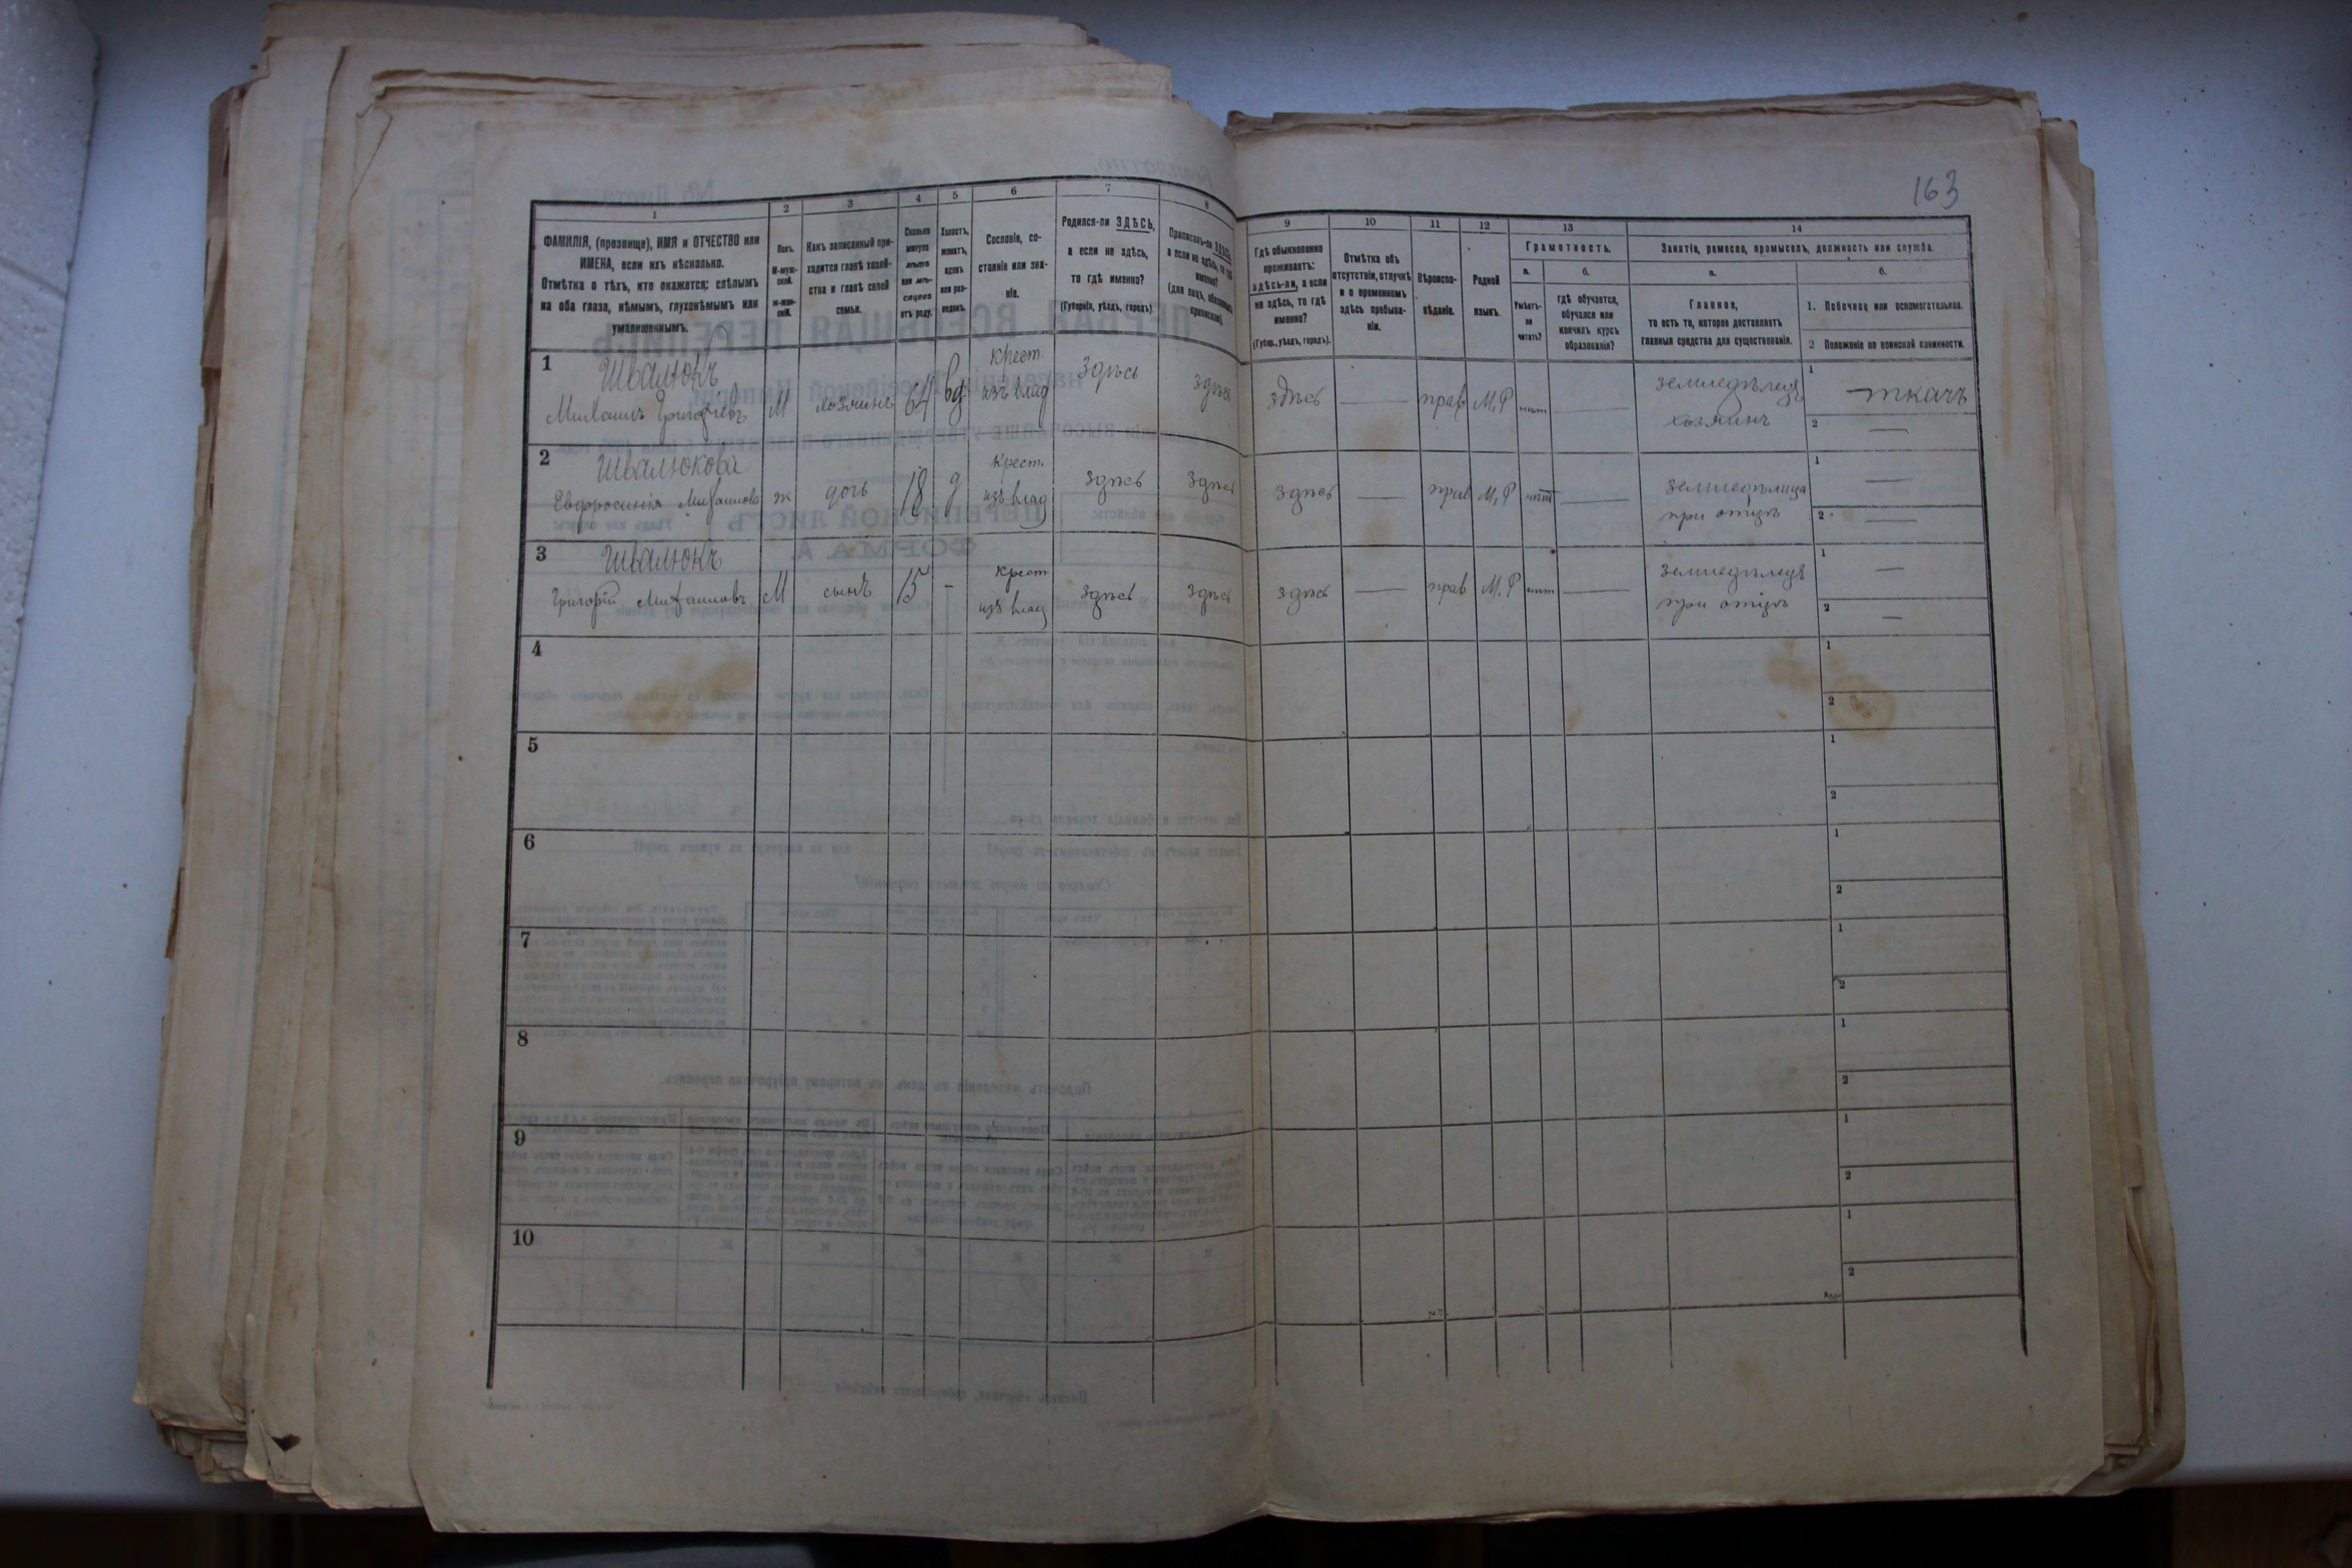 163
1 2 3 4 5 6 7 8 9 10 11 12 13 14
ФАМИЛІЯ, (прозвище), ИМЯ и ОТЧЕСТВО или
ИМЕНА, если ихъ нѣсколько.
Отмѣтка о тѣхъ, кто окажется: слѣпымъ
на оба глаза, нѣмымъ, глухонѣмымъ или
умалишеннымъ.
Полъ.
М-муж-
ской.
Ж-жен-
скій.
Какъ записанный при-
ходится главѣ хозяй-
ства и главѣ своей
семьи.
Сколько
минуло
лѣтъ
или мѣ-
сяцевъ
отъ роду.
Холостъ,
женатъ,
вдовъ
или раз-
веденъ.
Сословіе, со-
стояніе или зва-
ніе.
Родился-ли ЗДѢСЬ,
а если не здѣсь,
то гдѣ именно?
(Губернія, уѣздъ, городъ).
Приписанъ-ли ЗДѢСЬ,
а если не здѣсь, то гдѣ
именно?
(для лицъ, обязанныхъ
припискою).
Гдѣ обыкновенно
проживаетъ:
здѣсь-ли, а если
не здѣсь, то гдѣ
именно?
(Губер., уѣздъ, городъ).
Отмѣтка объ
отсутствіи, отлучкѣ
и о временномъ
здѣсь пребыва-
ніи.
Вѣроиспо-
вѣданіе.
Родной
языкъ.
Грамотность.
а.
Умѣетъ-
ли
читать?
б.
гдѣ обучается,
обучался или
кончилъ курсъ
образованія?
Занятіе, ремесло, промыселъ, должность или служба.
а.
Главное,
то есть то, которое доставляетъ
главныя средства для существованія.
б.
1. Побочное или вспомогательное.
2 Положеніе по воинской повинности.
1 Швалюкъ
Михаилъ Григорьевъ М хозяинъ 64 вд крест. изъ влад здѣсь здѣсь здѣсь — прав М.Р нѣт — земледѣлецъ хозяинъ 1 — ткачъ 2 —
2 Швалюкова
Евфросинія Михаилова ж дочь 18 д крест. изъ влад здѣсь здѣсь здѣсь — прав М.Р нѣт — земледѣлица при отцѣ 1 — 2 —
3 Швалюкъ
Григорій Михаиловъ М сынъ 15 - крест изъ влад здѣсь здѣсь здѣсь — прав М.Р нѣт — земледѣлецъ при отцѣ 1 — 2 —
4 1 2
5 1 2
6 1 2
7 1 2
8 1 2
9 1 2
10 1 2